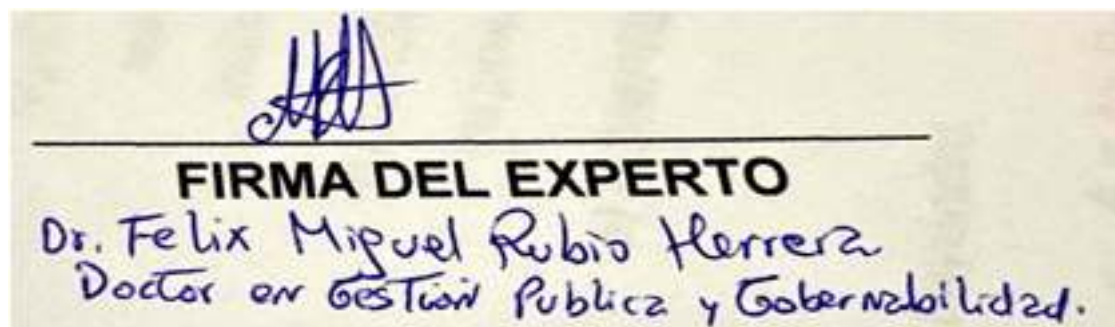 FIRMA DEL EXPERTO
Dr. Felix Miguel Rubio Herrera
Doctor en Gestión Publica y Gobernabilidad.